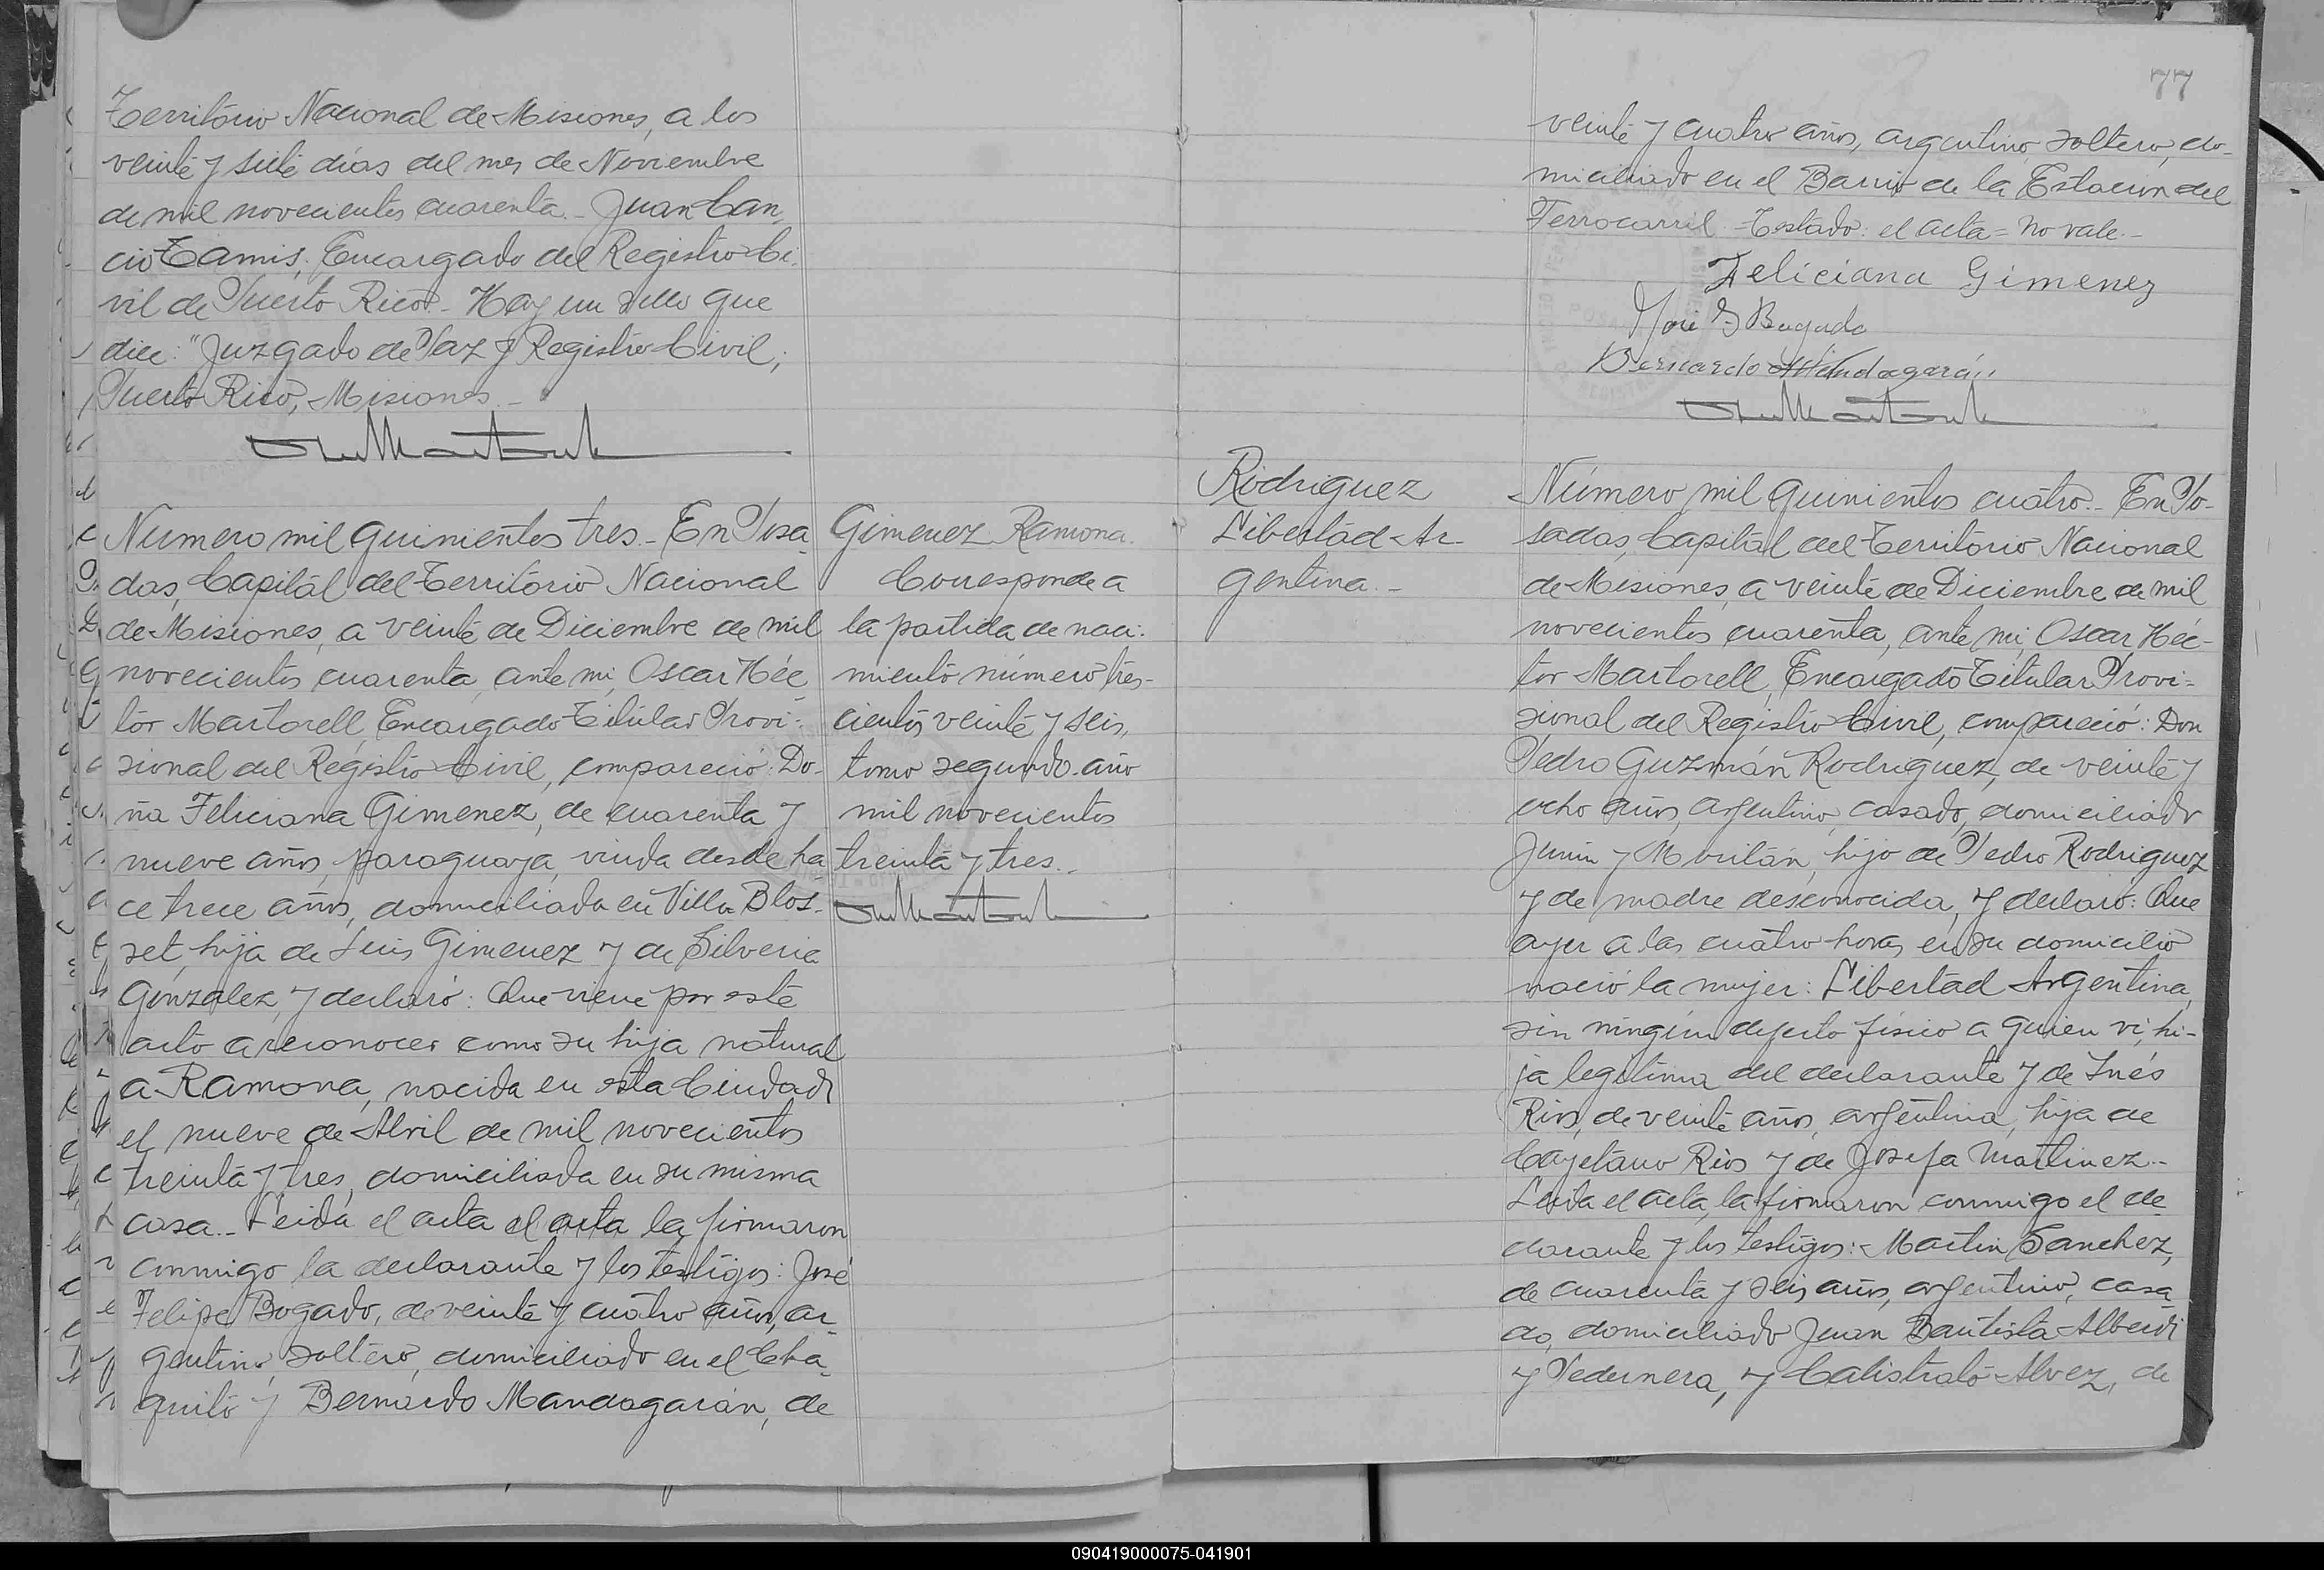 Territorio Nacional de Misiones, a los
veinte y siete días del mes de Noviembre
de mil novecientos cuarenta.- Juan Can-
cio Tamis, Encargado del Registro Ci-
vil de Puerto Rico.- Hay un sello que
dice: "Juzgado de Paz y Registro Civil,
Puerto Rico, Misiones.-
Número mil quinientos tres.- En Posa-
das, Capital del Territorio Nacional
de Misiones, a veinte de Diciembre de mil
novecientos cuarenta, ante mi, Oscar Héc
tor Martorell, Encargado Titular Provi-
sional del Registro Civil, compareció: Do-
ña Feliciana Gimenez, de cuarenta y
nueve años, paraguaya, viuda desde ha
ce trece años, domiciliada en Villa Blos-
set, hija de Luis Gimenez y de Silveria
González, y declaró: Que viene por este
acto a reconocer como su hija natural
a Ramona, nacida en esta Ciudad
el nueve de Abril de mil novecientos
treinta y tres, domiciliada en su misma
casa.- Leida el acta el acta la firmaron
conmigo la declarante y los testigos: José
Felipe Bogado, de veinte y cuatro años, ar-
gentino, soltero, domiciliado en el Cha-
quito y Bernardo Mandagarán, de
Gimenez Ramona.
Corresponde a
la partida de naci-
miento número tres-
cientos veinte y seis,
tomo segundo año
mil novecientos
treinta y tres.-
77
veinte y cuatro años, argentino, soltero, do-
miciliado en el Barrio de la Estación del
Ferrocarril.- Testado: el acta = no vale.-
Feliciana Gimenez
José F Bogado
Bernardo Mandagarán
Rodriguez
Libertad Ar-
gentina.-
Número mil quinientos cuatro.- En Po-
sadas, Capital del Territorio Nacional
de Misiones, a veinte de Diciembre de mil
novecientos cuarenta, ante mi, Oscar Héc-
tor Martorell, Encargado Titular Provi-
sional del Registro Civil, compareció: Don
Pedro Guzmán Rodriguez, de veinte y
ocho años, argentino, casado, domiciliado
Junin y Moritán, hijo de Pedro Rodriguez
y de madre desconocida, y declaró: Que
ayer a las cuatro horas en su domicilio
nació la mujer: Libertad Argentina,
sin ningún defecto físico a quien vi, hi-
ja legítima del declarante y de Inés
Rios, de veinte años, argentina, hija de
Cayetano Rios y de Josefa Martinez.-
Leida el acta, la firmaron conmigo el de
clarante y los testigos: Martin Sanchez,
de cuarenta y seis años, argentino, casa
do, domiciliado Juan Bautista Alberdi
y Pedernera, y Calistrato Alvez, de
090419000075-041901